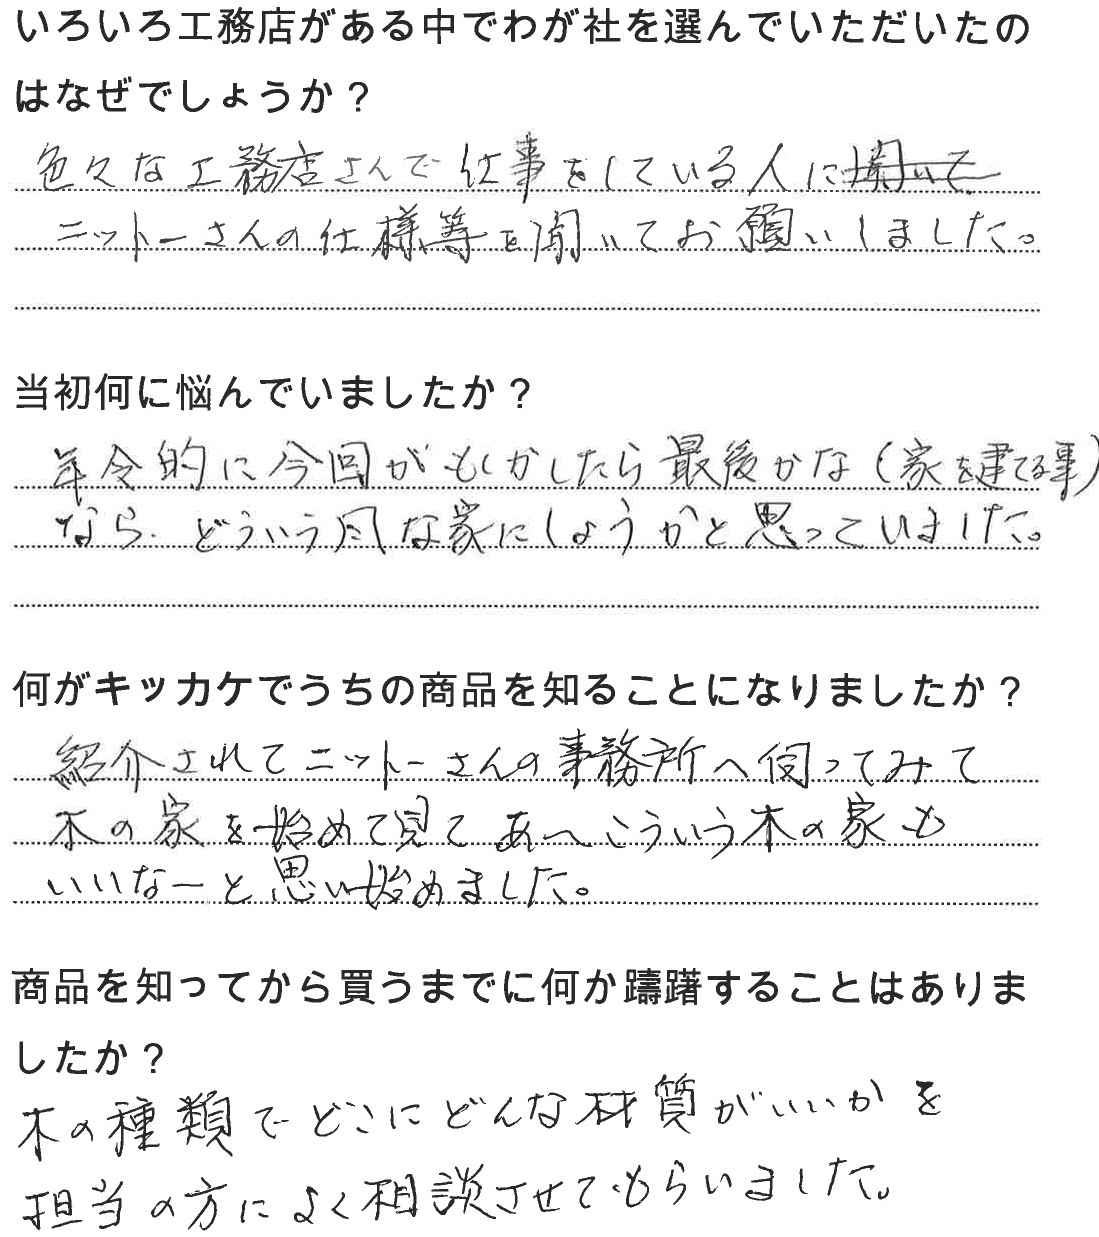 いろいろ工務店がある中でわが社を選んでいただいたの
はなぜでしょうか？
色々な工務店さんで仕事をしている人に聞いて
ニットーさんの仕様等を聞いてお願いしました。
当初何に悩んでいましたか？
年令的に今回がもしかしたら最後かな（家を建てる事）
なら、どういう風な家にしようかと思っていました。
何がキッカケでうちの商品を知ることになりましたか？
紹介されてニットーさんの事務所へ伺ってみて
木の家を始めて見てあ〜こういう木の家も
いいなーと思い始めました。
商品を知ってから買うまでに何か躊躇することはありま
したか？
木の種類でどこにどんな材質がいいかを
担当の方によく相談させてもらいました。